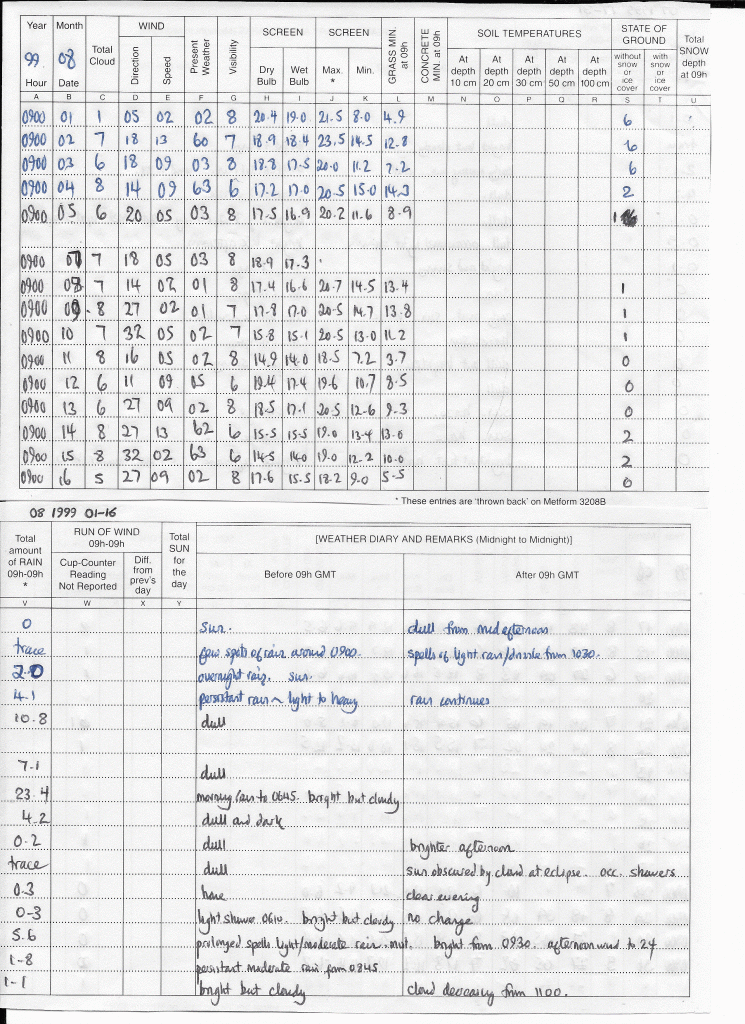 Year Month Total Cloud WIND Present Weather Visibility SCREEN SCREEN GRASS MIN. at 09h CONCRETE MIN. at 09h SOIL TEMPERATURES STATE OF GROUND Total SNOW depth at 09h
99 08 Direction Speed Dry Bulb Wet Bulb Max. * Min. At depth 10 cm At depth 20 cm At depth 30 cm At depth 50 cm At depth 100 cm without snow or ice cover with snow or ice cover
Hour Date
A B C D E F G H I J K L M N O P Q R S T U
0900 01 1 05 02 02 8 20.4 19.0 21.5 8.0 4.9 6
0900 02 7 18 13 60 7 18.9 18.4 23.5 14.5 12.8 6
0900 03 6 18 09 03 8 18.8 17.5 20.0 11.2 7.2 6
0900 04 8 14 09 63 6 17.2 17.0 20.5 15.0 14.3 2
0900 05 6 20 05 03 8 17.5 16.9 20.2 11.6 8.9 1
0900 07 7 18 05 03 8 18.9 17.3
0900 08 7 14 02 01 8 17.4 16.6 20.7 14.5 13.4 1
0900 09 8 27 02 01 7 17.8 17.0 20.5 14.7 13.8 1
0900 10 7 32 05 02 7 15.8 15.1 20.5 13.0 11.2 1
0900 11 8 16 05 02 8 14.9 14.0 18.5 7.2 3.7 0
0900 12 6 11 09 05 6 19.4 17.4 19.6 10.7 8.5 0
0900 13 6 27 09 02 8 18.5 17.1 20.5 12.6 9.3 0
0900 14 8 27 13 62 6 15.5 15.5 19.0 13.4 13.0 2
0900 15 8 32 02 63 6 14.5 14.0 19.0 12.2 10.0 2
0900 16 5 27 09 02 8 17.6 15.5 18.2 9.0 5.5 0
* These entries are 'thrown back' on Metform 3208B
08 1999 01-16
Total amount of RAIN 09h-09h * RUN OF WIND 09h-09h Total SUN for the day [WEATHER DIARY AND REMARKS (Midnight to Midnight)]
Cup-Counter Reading Not Reported Diff. from prev's day Before 09h GMT After 09h GMT
V W X Y
0 sun. dull from mid afternoon
trace few spots of rain around 0900. spells of light rain/drizzle from 1030.
2.0 overnight rain. sun.
4.1 persistant rain ~ light to heavy rain continues
10.8 dull
7.1 dull
23.4 morning rain to 0645. bright but cloudy
4.2 dull and dark
0.2 dull brighter afternoon
trace dull sun obscured by cloud at eclipse. occ. showers
0.3 haze clear evening
0.3 light shower 0610. bright but cloudy no change
5.6 prolonged spells light/moderate rain. bright from 0930. afternoon wind to 24
1.8 persistant moderate rain from 0345
1.1 bright but cloudy cloud decreasing from 1100.